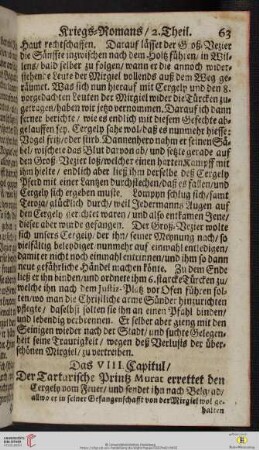 Kriegs-Romans/ 2. Theil. 63
Haut rechtschaffen. Darauf lässet der Groß-Vezier
die Sänffte ingwischen nach dem Holtz führen/ in Wil-
lens/ bald selber zu folgen/ wann er die annoch wider-
stehende Leute der Mirgiel vollends auß dem Weg ge-
räumet. Was sich nun hierauf mit Cergely und den 8.
vorgedachten Leuten der Mirgiel wider die Türcken zu-
getragen/ haben wir jetzo vernommen. Darauf ich dann
ferner berichte/ wie es endlich mit diesem Gefechte ab-
gelauffen sey. Cergely sahe wol/ daß es nunmehr hiesse:
Vogel friß/ oder stirb. Dannenhero nahm er seinen Sä-
bel/ wischete das Blut davon ab/ und setzte gerade auf
den Groß-Vezier loß/ welcher einen harten Kampff mit
ihm hielte/ endlich aber ließ ihm derselbe deß Cergely
Pferd mit einer Lantzen durchstechen/ daß es fallen/ und
Cergely sich ergeben muste. Tompyn schlug sich/ samt
Teroja/ glücklich durch/ weil jedermanns Augen auf
den Cergely gerichtet waren/ und also entkamen Jene/
dieser aber wurde gefangen. Der Groß-Vezier wolte
sich unsers Cergely, der ihn/ seiner Meynung nach/ so
vielfältig beleydiget/ nunmehr auf einmahl entledigen/
damit er nicht noch einmahl entrinnen/ und ihm so dann
neue gefährliche Händel machen könte. Zu dem Ende
ließ er ihn binden/ und ordnete ihm 6. starcke Türcken zu/
welche ihn nach dem Justiz-Platz vor Ofen führen sol-
ten/ wo man die Christliche arme Sünder hinzurichten
pflegte/ daselbst solten sie ihn an einen Pfahl binden/
und lebendig verbrennen. Er selber aber gieng mit den
Seinigen wieder nach der Stadt/ und suchte Gelegen-
heit seine Traurigkeit/ wegen deß Verlusts der über-
schönen Mirgiel/ zu vertreiben.
Das VIII. Capitul/
Der Tartarische Printz Murat errettet den
Cergely vom Feuer/ und sendet ihn nach Belgrad/
allwo er in seiner Gefangenschafft von der Mirgiel wol ge-
halten